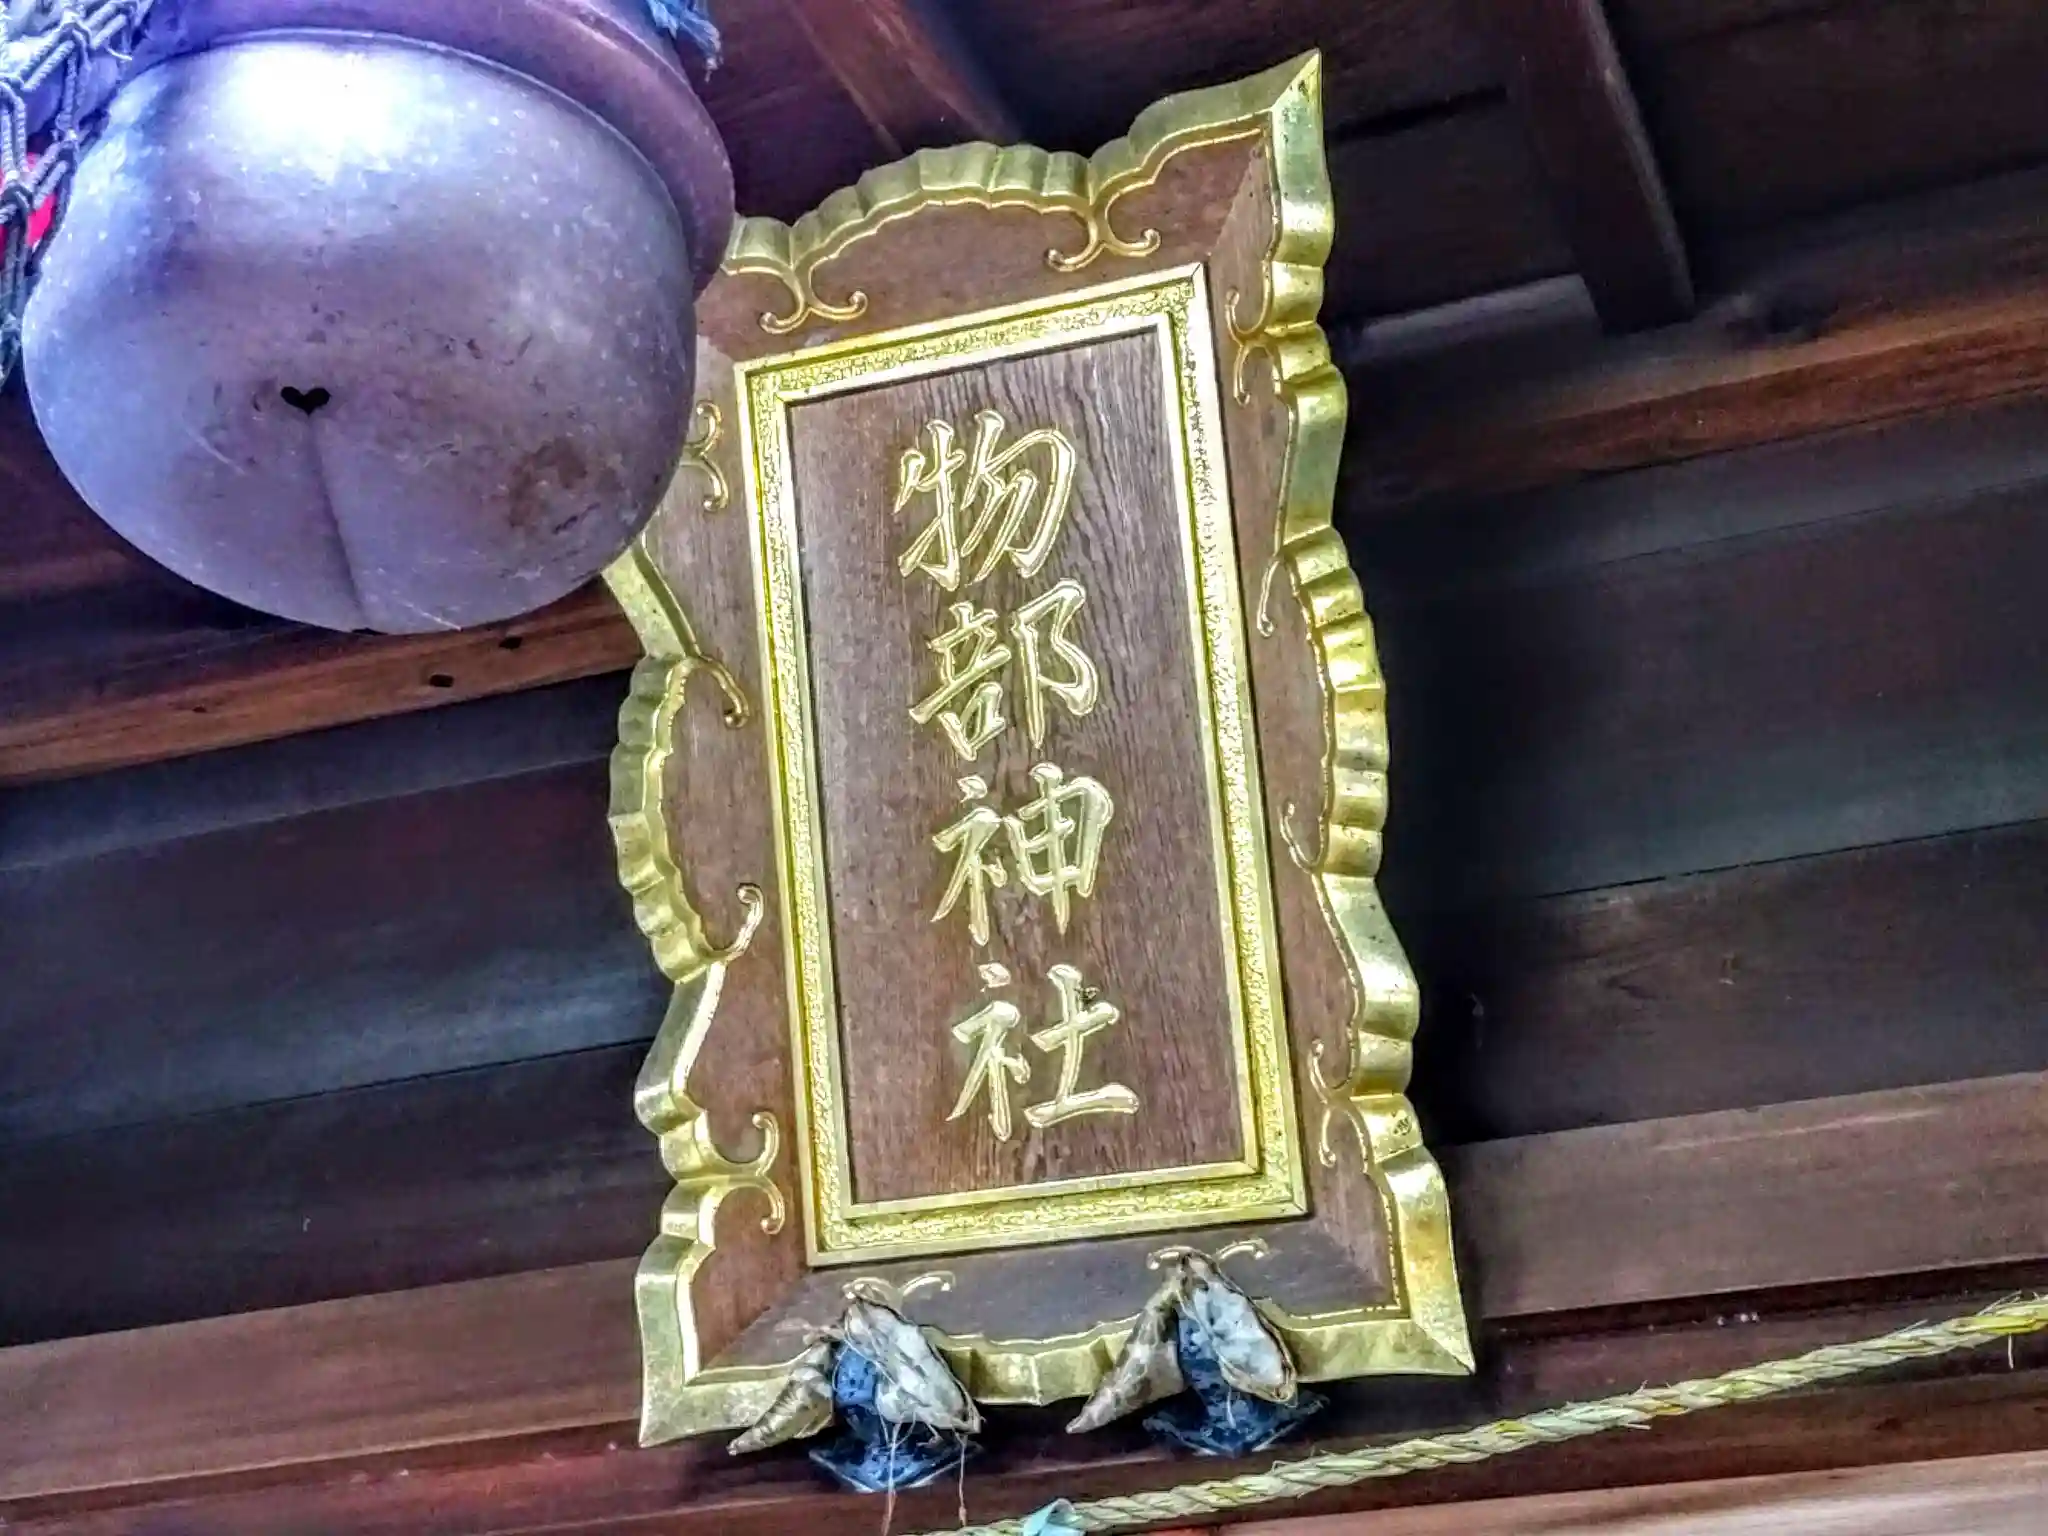 物部神社